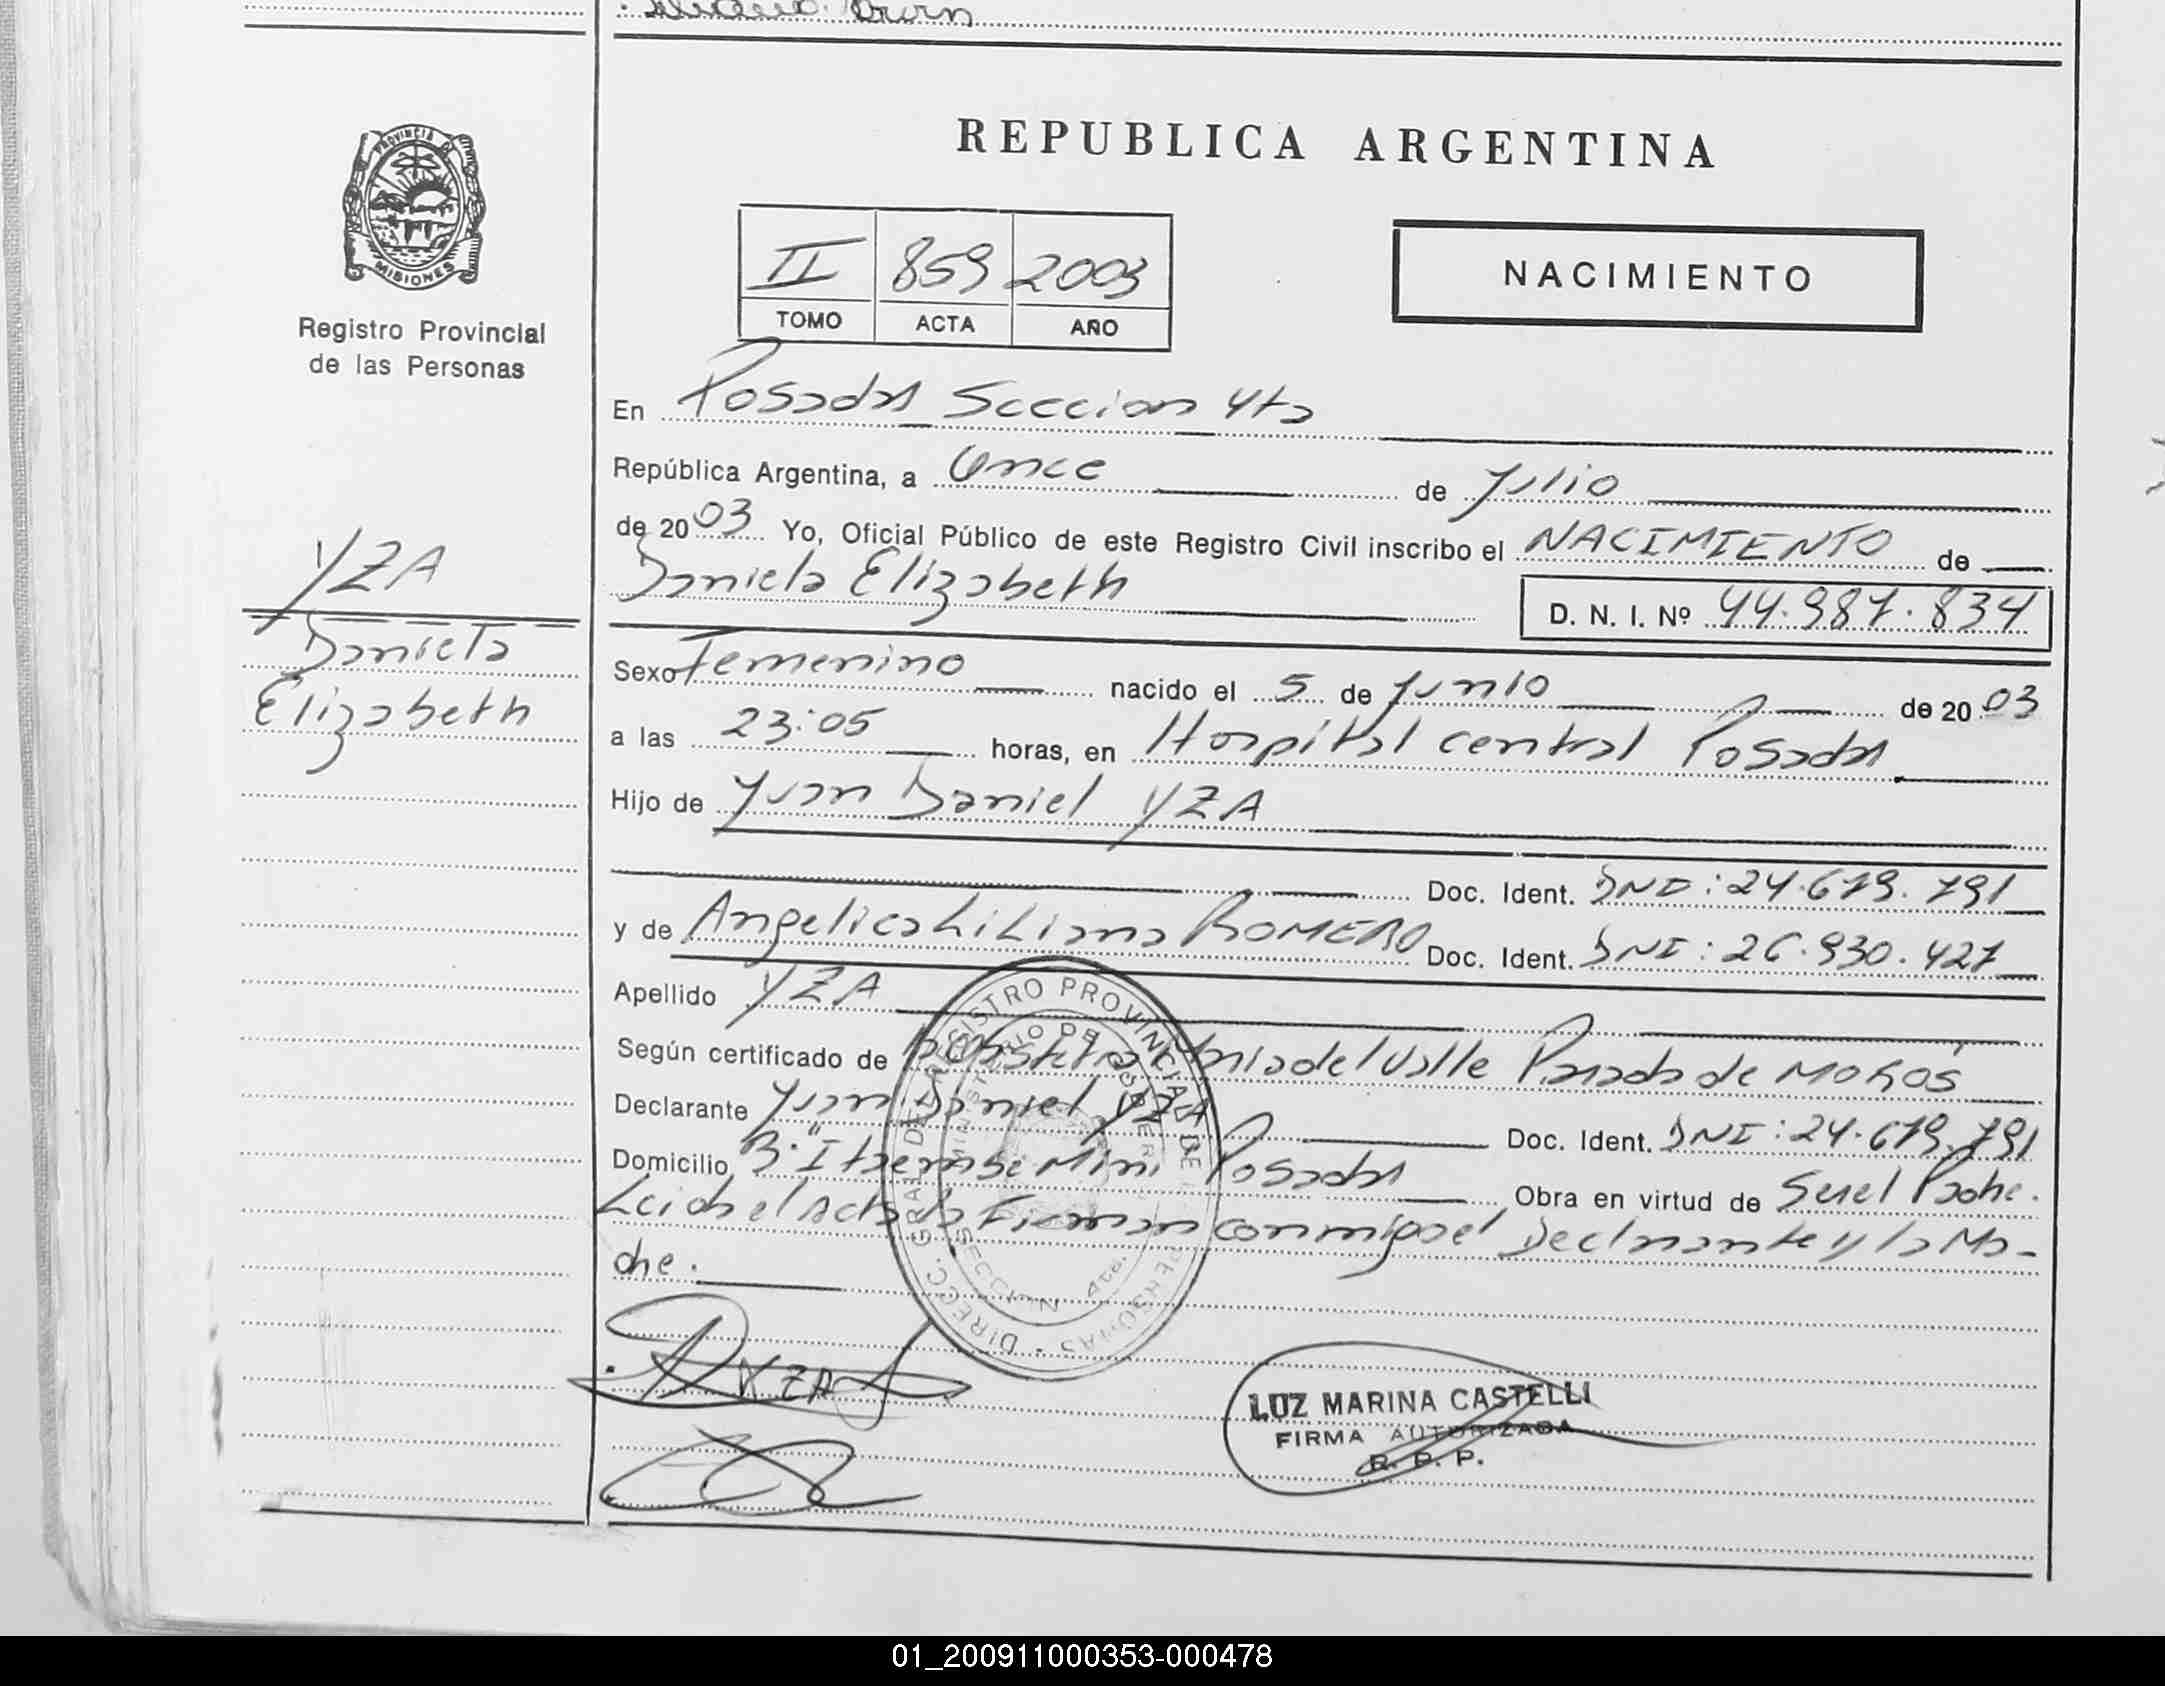 REPUBLICA ARGENTINA
PROVINCIA DE MISIONES
Registro Provincial
de las Personas
II 859 2003
TOMO ACTA AÑO
NACIMIENTO
En Posadas Seccion 4ta
República Argentina, a Once de Julio
de 2003 Yo, Oficial Público de este Registro Civil inscribo el NACIMIENTO de
Daniela Elizabeth D. N. I. Nº 44.987.834
YZA
Daniela
Elizabeth
Sexo Femenino nacido el 5 de Junio de 2003
a las 23:05 horas, en Hospital central Posadas
Hijo de Juan Daniel YZA
Doc. Ident. DNI: 24.679.791
y de Angelica Liliana ROMERO Doc. Ident. DNI: 26.930.427
Apellido YZA
Según certificado de Obstetra del Valle Parada de
Declarante Juan Daniel YZA Doc. Ident. DNI: 24.679.791
Domicilio B° Itaembe Mini Posadas Obra en virtud de Ser el Padre.
Leida el Acta la Firman conmigo el Declarante y la Ma-
dre.
DIRECC. GRAL. DEL REGISTRO PROVINCIAL DE LAS PERSONAS
MINISTERIO DE GOBIERNO
SECCION 4ta.
YZA
LUZ MARINA CASTELLI
FIRMA AUTORIZADA
R. P. P.
01_200911000353-000478